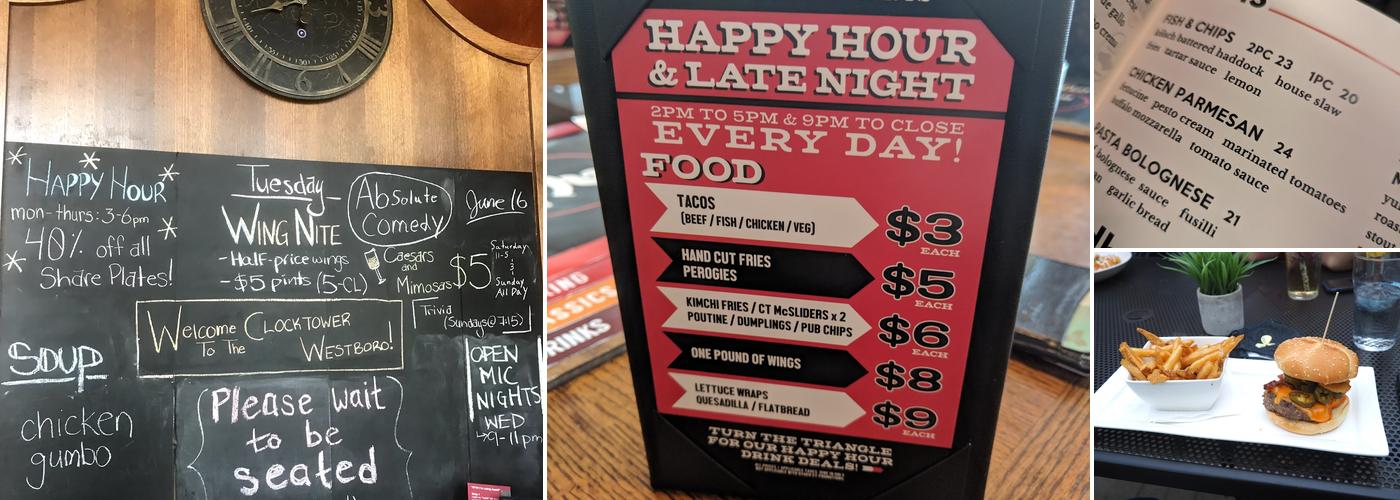 HAPPY HOUR
mon-thurs: 3-6pm
40% off all
Share Plates!
Tuesday
WING NITE
- Half-price wings
- $5 pints (5-CL)
Absolute
Comedy
June 16
Caesars
and
Mimosas
$5
Saturday
11-5
Sunday
All Day
Trivia
(Sundays@7:15)
WELCOME CLOCKTOWER
TO THE WESTBORO!
SOUP
chicken
gumbo
Please wait
to be
seated
OPEN
MIC
NIGHTS
WED
9-11pm
HAPPY HOUR
& LATE NIGHT
2PM TO 5PM & 9PM TO CLOSE
EVERY DAY!
FOOD
TACOS
(BEEF / FISH / CHICKEN / VEG)
$3
EACH
HAND CUT FRIES
PEROGIES
$5
EACH
KIMCHI FRIES / CT McSLIDERS x 2
POUTINE / DUMPLINGS / PUB CHIPS
$6
EACH
ONE POUND OF WINGS
$8
LETTUCE WRAPS
QUESADILLA / FLATBREAD
$9
EACH
TURN THE TRIANGLE
FOR OUR HAPPY HOUR
DRINK DEALS!
DRINKS
de gallo
FISH & CHIPS 2PC 23 1PC 20
battered haddock house slaw
fries tartar sauce lemon
CHICKEN PARMESAN 24
fettucine pesto cream marinated tomatoes
buffalo mozzarella tomato sauce
PASTA BOLOGNESE 21
bolognese sauce fusilli
garlic bread